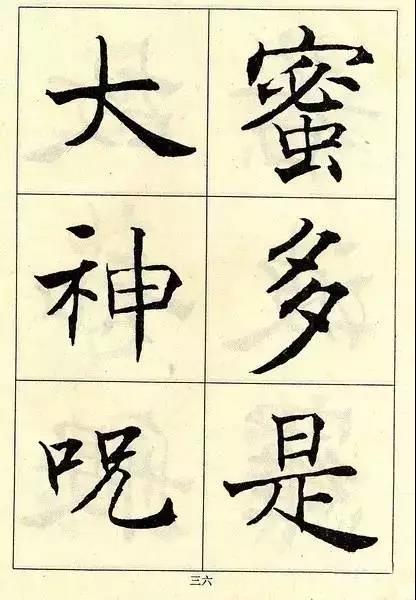 蜜多是
大神咒
三六